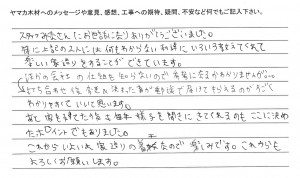 ヤマカ木材へのメッセージや意見、感想、工事への期待、疑問、不安など何でもご記入下さい。
スタッフみなさんにお世話になりありがとうございました。
特に上記の2人には何もわからない私達にいろいろ教えてくれて
楽しい家造りをすることができています。
ほかの会社の仕組を知らないので本当に言うかわかりませんが、
打ち合わせ後今日決まった事が郵送で届けてもらえるのがすごく
わかりやすくていいと思います。
あと家を建てた後は毎年様子を聞きにきてくれるのもここに決め
たポイントでもありました。
これからいよいよ家造りの着工なので楽しみです。これからも
よろしくお願いします。